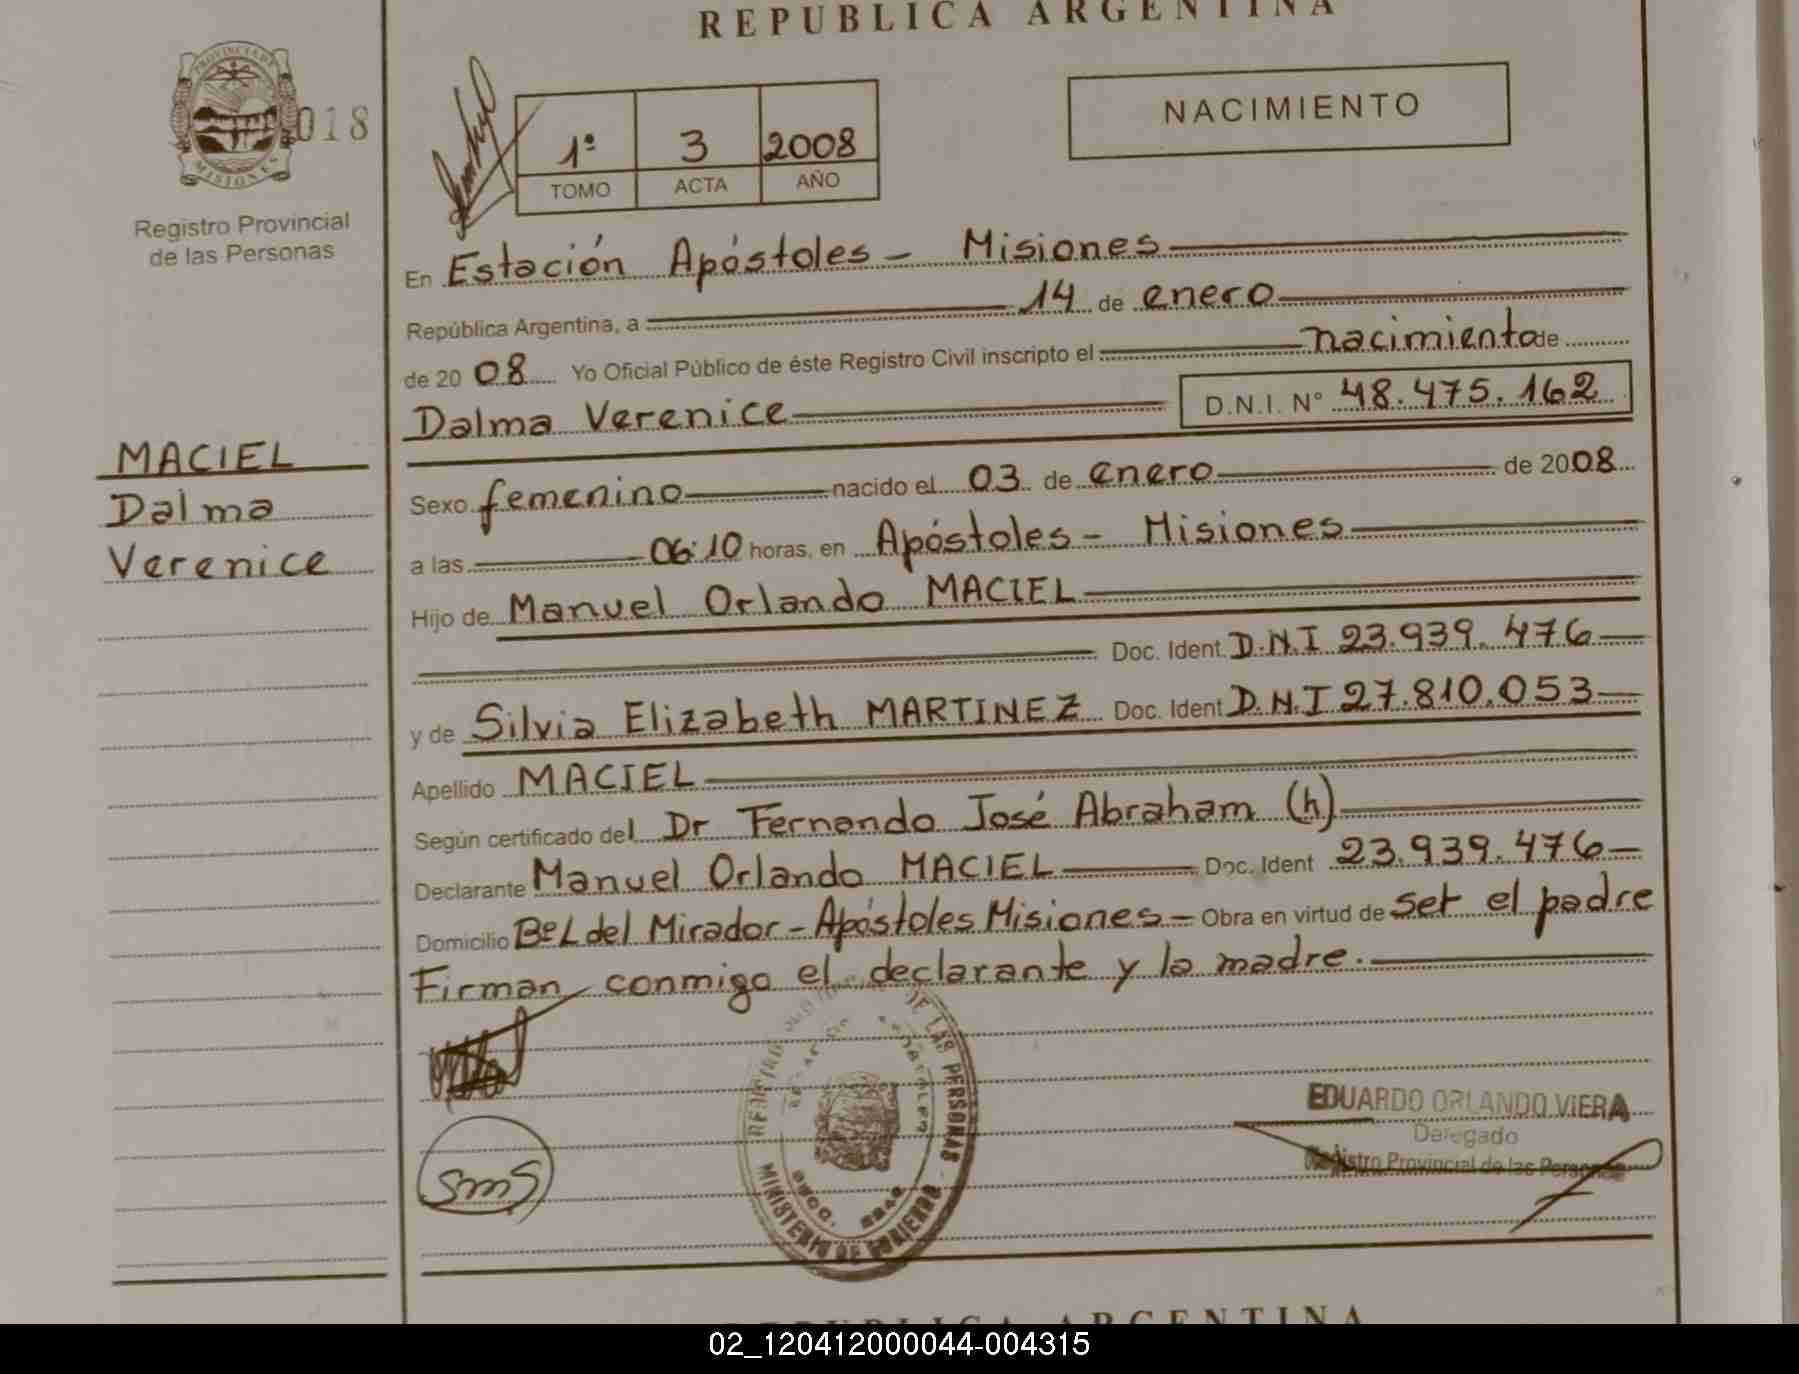 REPUBLICA ARGENTINA
PROVINCIA DE
MISIONES
018
Registro Provincial
de las Personas
1º 3 2008
TOMO ACTA AÑO
NACIMIENTO
En Estación Apóstoles - Misiones
República Argentina, a 14 de enero
de 2008 Yo Oficial Público de éste Registro Civil inscripto el nacimiento de
Dalma Verenice D.N.I. Nº 48.475.162
MACIEL
Dalma
Verenice
Sexo femenino nacido el 03 de enero de 2008
a las 06:10 horas, en Apóstoles - Misiones
Hijo de Manuel Orlando MACIEL
Doc. Ident. D.N.I 23.939.476
y de Silvia Elizabeth MARTINEZ Doc. Ident D.N.I 27.810.053
Apellido MACIEL
Según certificado del Dr Fernando José Abraham (h)
Declarante Manuel Orlando MACIEL Doc. Ident 23.939.476
Domicilio Bº L del Mirador - Apóstoles Misiones - Obra en virtud de ser el padre
Firman conmigo el declarante y la madre.
DE LAS PERSONAS
MINISTERIO DE GOBIERNO
SMS
EDUARDO ORLANDO VIERA
Delegado
Registro Provincial de las Personas
REPUBLICA ARGENTINA
02_120412000044-004315